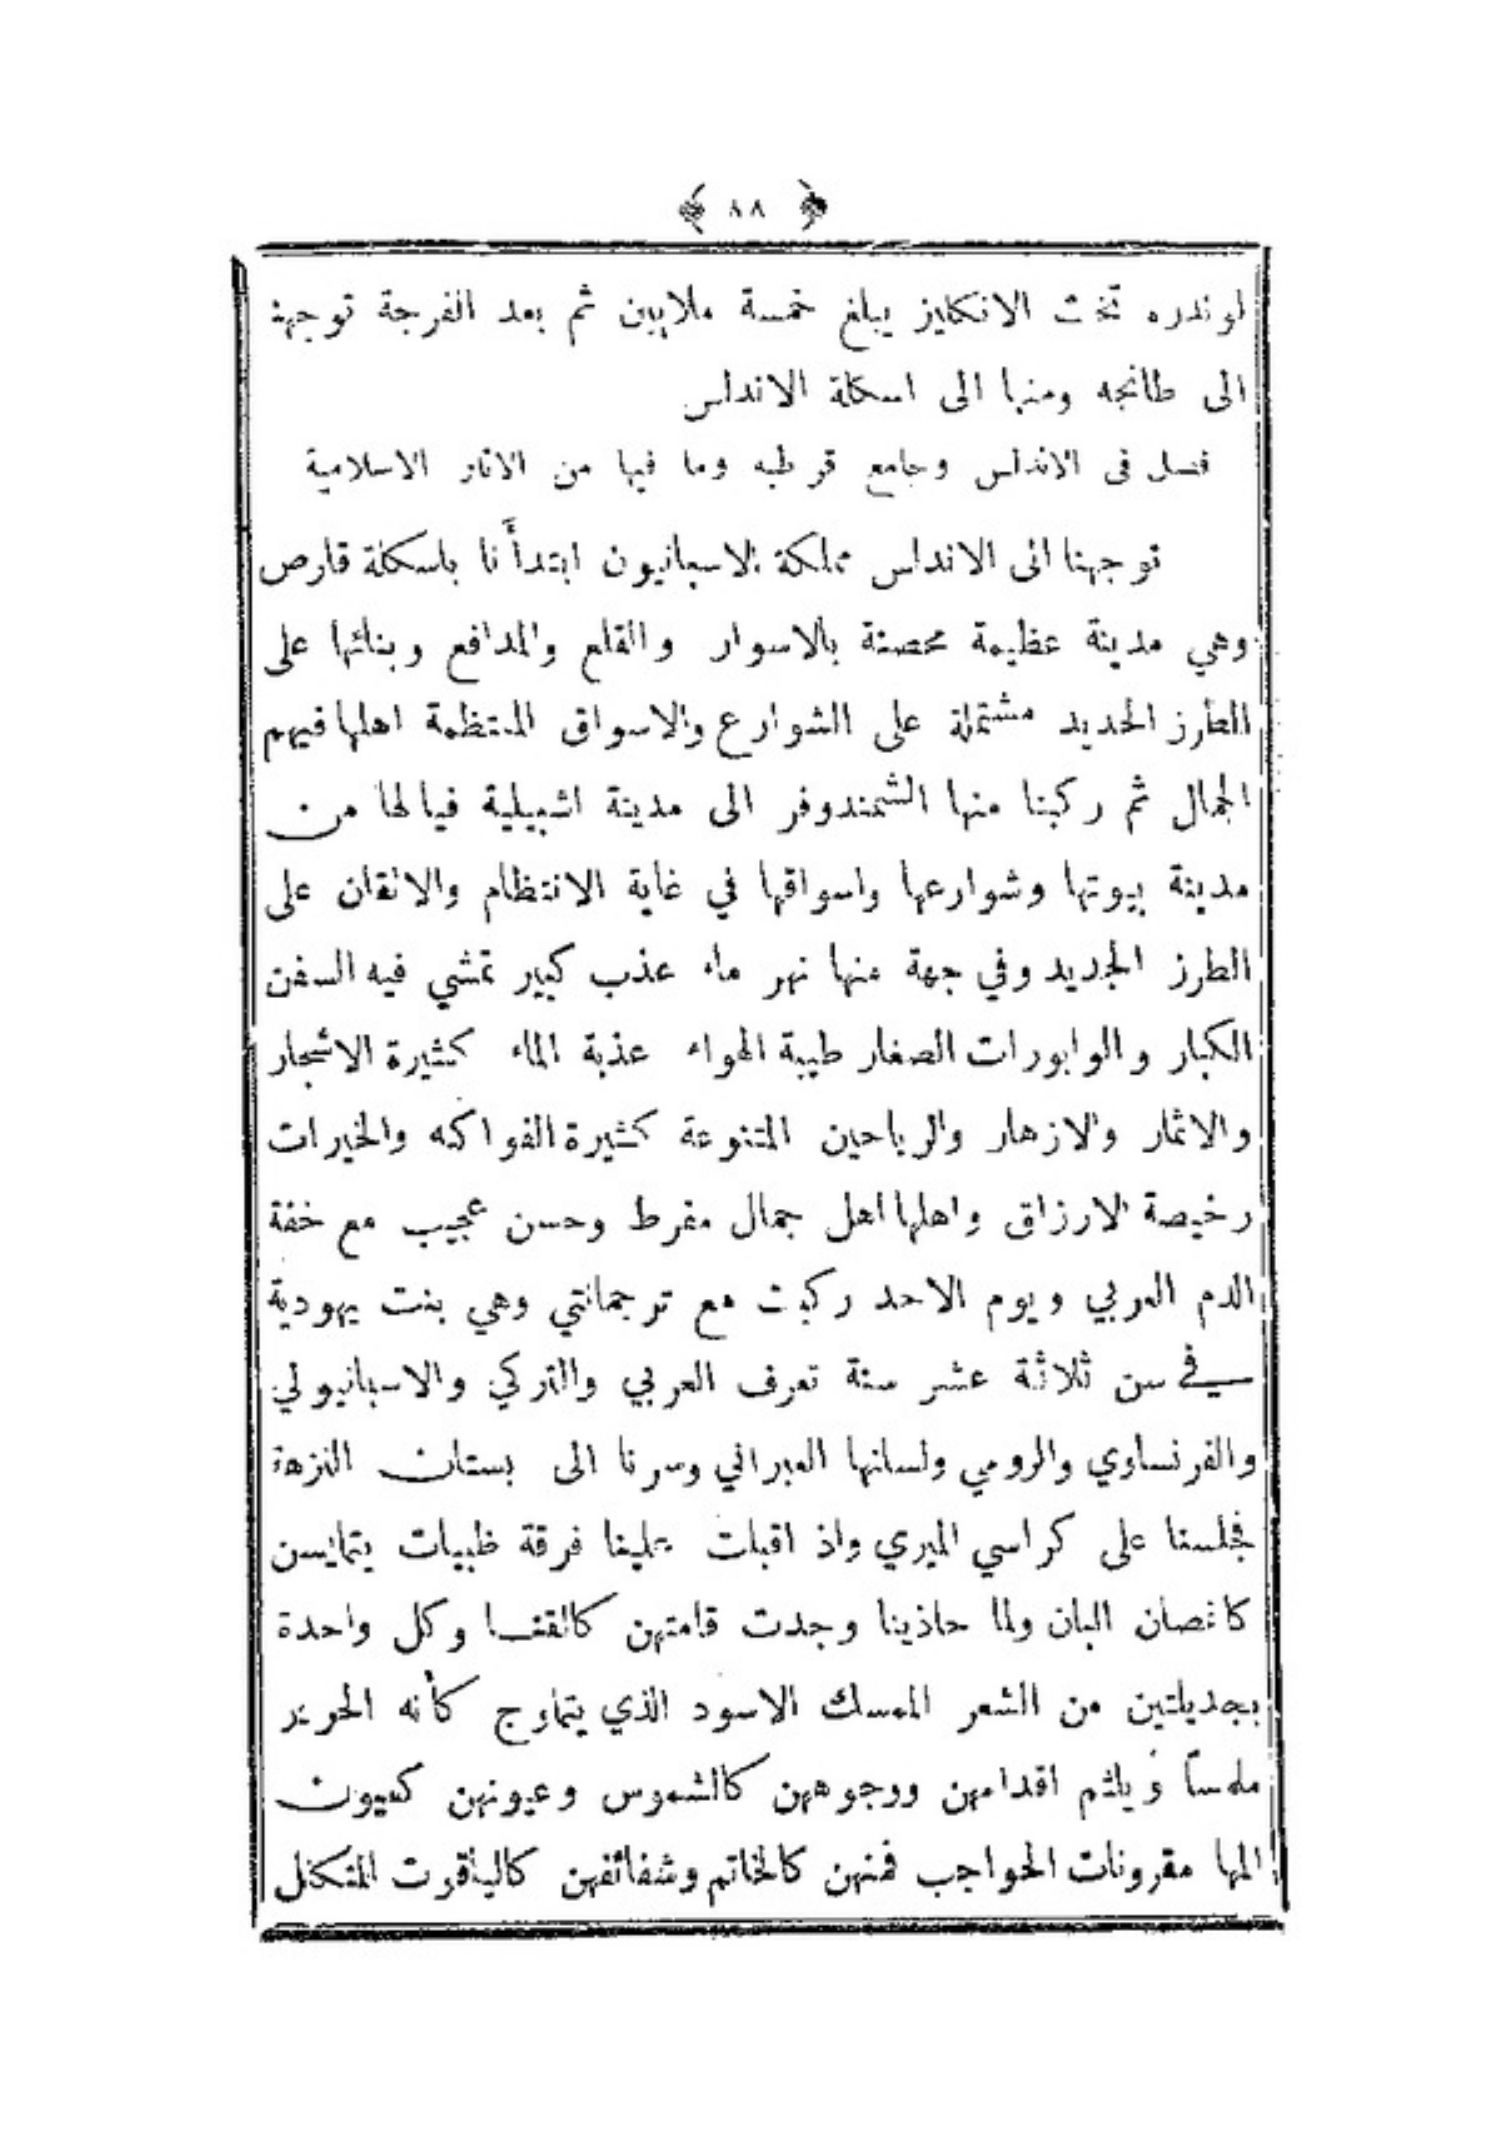 ﴿ ٨٨ ﴾
لوندره تخت الانكليز يبلغ خمسة ملايين ثم بعد الفرجة توجهنا
الى طانجه ومنها الى اسكلة الاندلس
فصل فى الاندلس وجامع قرطبه وما فيها من الاثار الاسلامية
توجهنا الى الاندلس مملكة الاسبانيون ابتدأنا باسكلة قارص
وهي مدينة عظيمة محصنة بالاسوار والقلع والمدافع وبنائها على
الطرز الجديد مشتملة على الشوارع والاسواق المنتظمة اهلها فيهم
الجمال ثم ركبنا منها الشمندوفر الى مدينة اشبيلية فيالها من
مدينة بيوتها وشوارعها واسواقها في غاية الانتظام والاتقان على
الطرز الجديد وفي جهة منها نهر ماء عذب كبير تمشي فيه السفن
الكبار والوابورات الصغار طيبة الهواء عذبة الماء كثيرة الاشجار
والاثمار والازهار والرياحين المتنوعة كثيرة الفواكه والخيرات
رخيصة الارزاق واهلها اهل جمال مفرط وحسن عجيب مع خفة
الدم العربي ويوم الاحد ركبت مع ترجمانتي وهي بنت يهودية
في سن ثلاثة عشر سنة تعرف العربي والتركي والاسبانيولي
والفرنساوي والرومي ولسانها العبراني وسرنا الى بستان النزهة
فجلسنا على كراسي الميري واذ اقبلت علينا فرقة ظبيات يتمايسن
كاغصان البان ولما حاذينا وجدت قامتهن كالقنا وكل واحدة
بجديلتين من الشعر الممسك الاسود الذي يتماوج كأنه الحرير
ملمساً ويلثم اقدامهن ووجوههن كالشموس وعيونهن كعيون
المها مقرونات الحواجب فمنهن كالخاتم وشفائفهن كالياقوت المتكلل